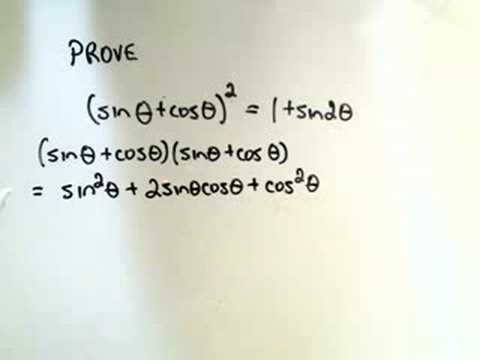 PROVE
(sin θ + cos θ)² = 1 + sin2θ
(sin θ + cos θ)(sin θ + cos θ)
= sin²θ + 2sinθcosθ + cos²θ